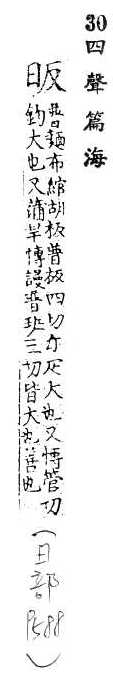 30 四聲篇海
昄
普麵布綰胡板普板四切尓疋大也又博管切
鈞大也又蒲半博謾普班三切皆大也善也
(日部 P588)